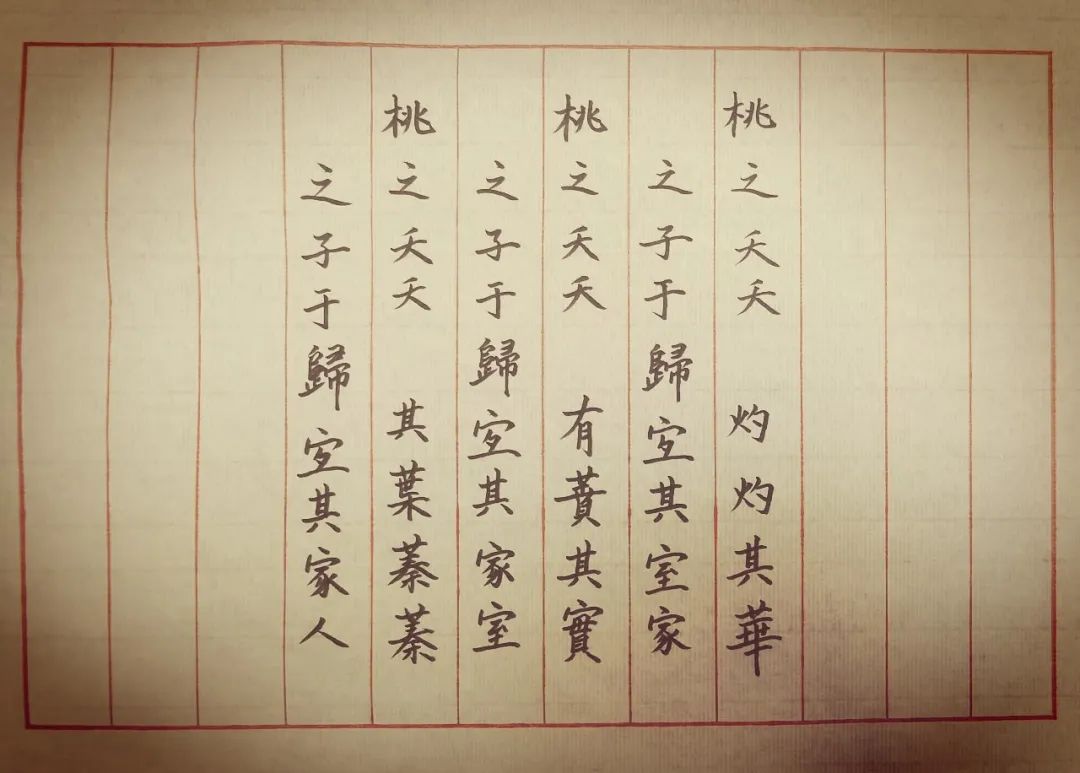 桃之夭夭 灼灼其華
之子于歸宐其室家
桃之夭夭 有蕡其實
之子于歸宐其家室
桃之夭夭 其葉蓁蓁
之子于歸宐其家人